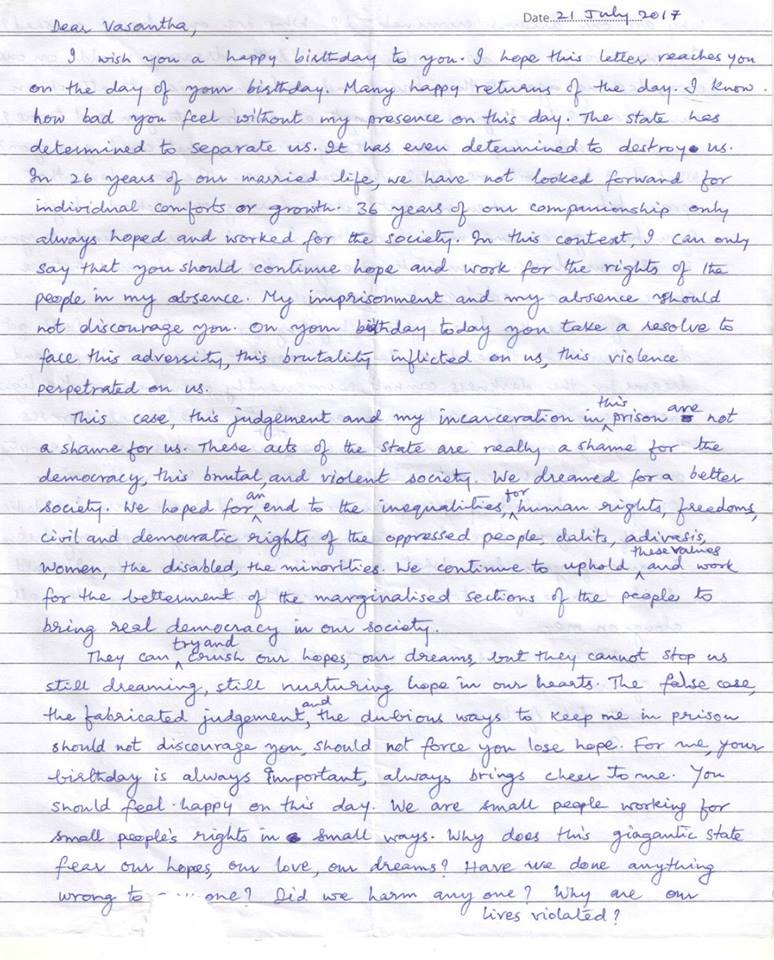 Date 21 July 2017
Dear Vasantha,
I wish you a happy birthday to you. I hope this letter reaches you
on the day of your birthday. Many happy returns of the day. I know
how bad you feel without my presence on this day. The state has
determined to separate us. It has even determined to destroy us.
In 26 years of our married life, we have not looked forward for
individual comforts or growth. 36 years of our companionship only
always hoped and worked for the society. In this context, I can only
say that you should continue hope and work for the rights of the
people in my absence. My imprisonment and my absence should
not discourage you. On your birthday today you take a resolve to
face this adversity, this brutality inflicted on us, this violence
perpetrated on us.
This case, this judgement and my incarceration in this prison are not
a shame for us. These acts of the state are really a shame for the
democracy, this brutal, and violent society. We dreamed for a better
society. We hoped for an end to the inequalities, for human rights, freedoms,
civil and democratic rights of the oppressed people, dalits, adivasis,
women, the disabled, the minorities. We continue to uphold these values and work
for the betterment of the marginalised sections of the people to
bring real democracy in our society.
They can try and crush our hopes, our dreams, but they cannot stop us
still dreaming, still nurturing hope in our hearts. The false case,
the fabricated judgement, and the dubious ways to keep me in prison
should not discourage you, should not force you lose hope. For me, your
birthday is always important, always brings cheer to me. You
should feel happy on this day. We are small people working for
small people's rights in small ways. Why does this giagantic state
fear our hopes, our love, our dreams? Have we done anything
wrong to one? Did we harm any one? Why are our
lives violated?